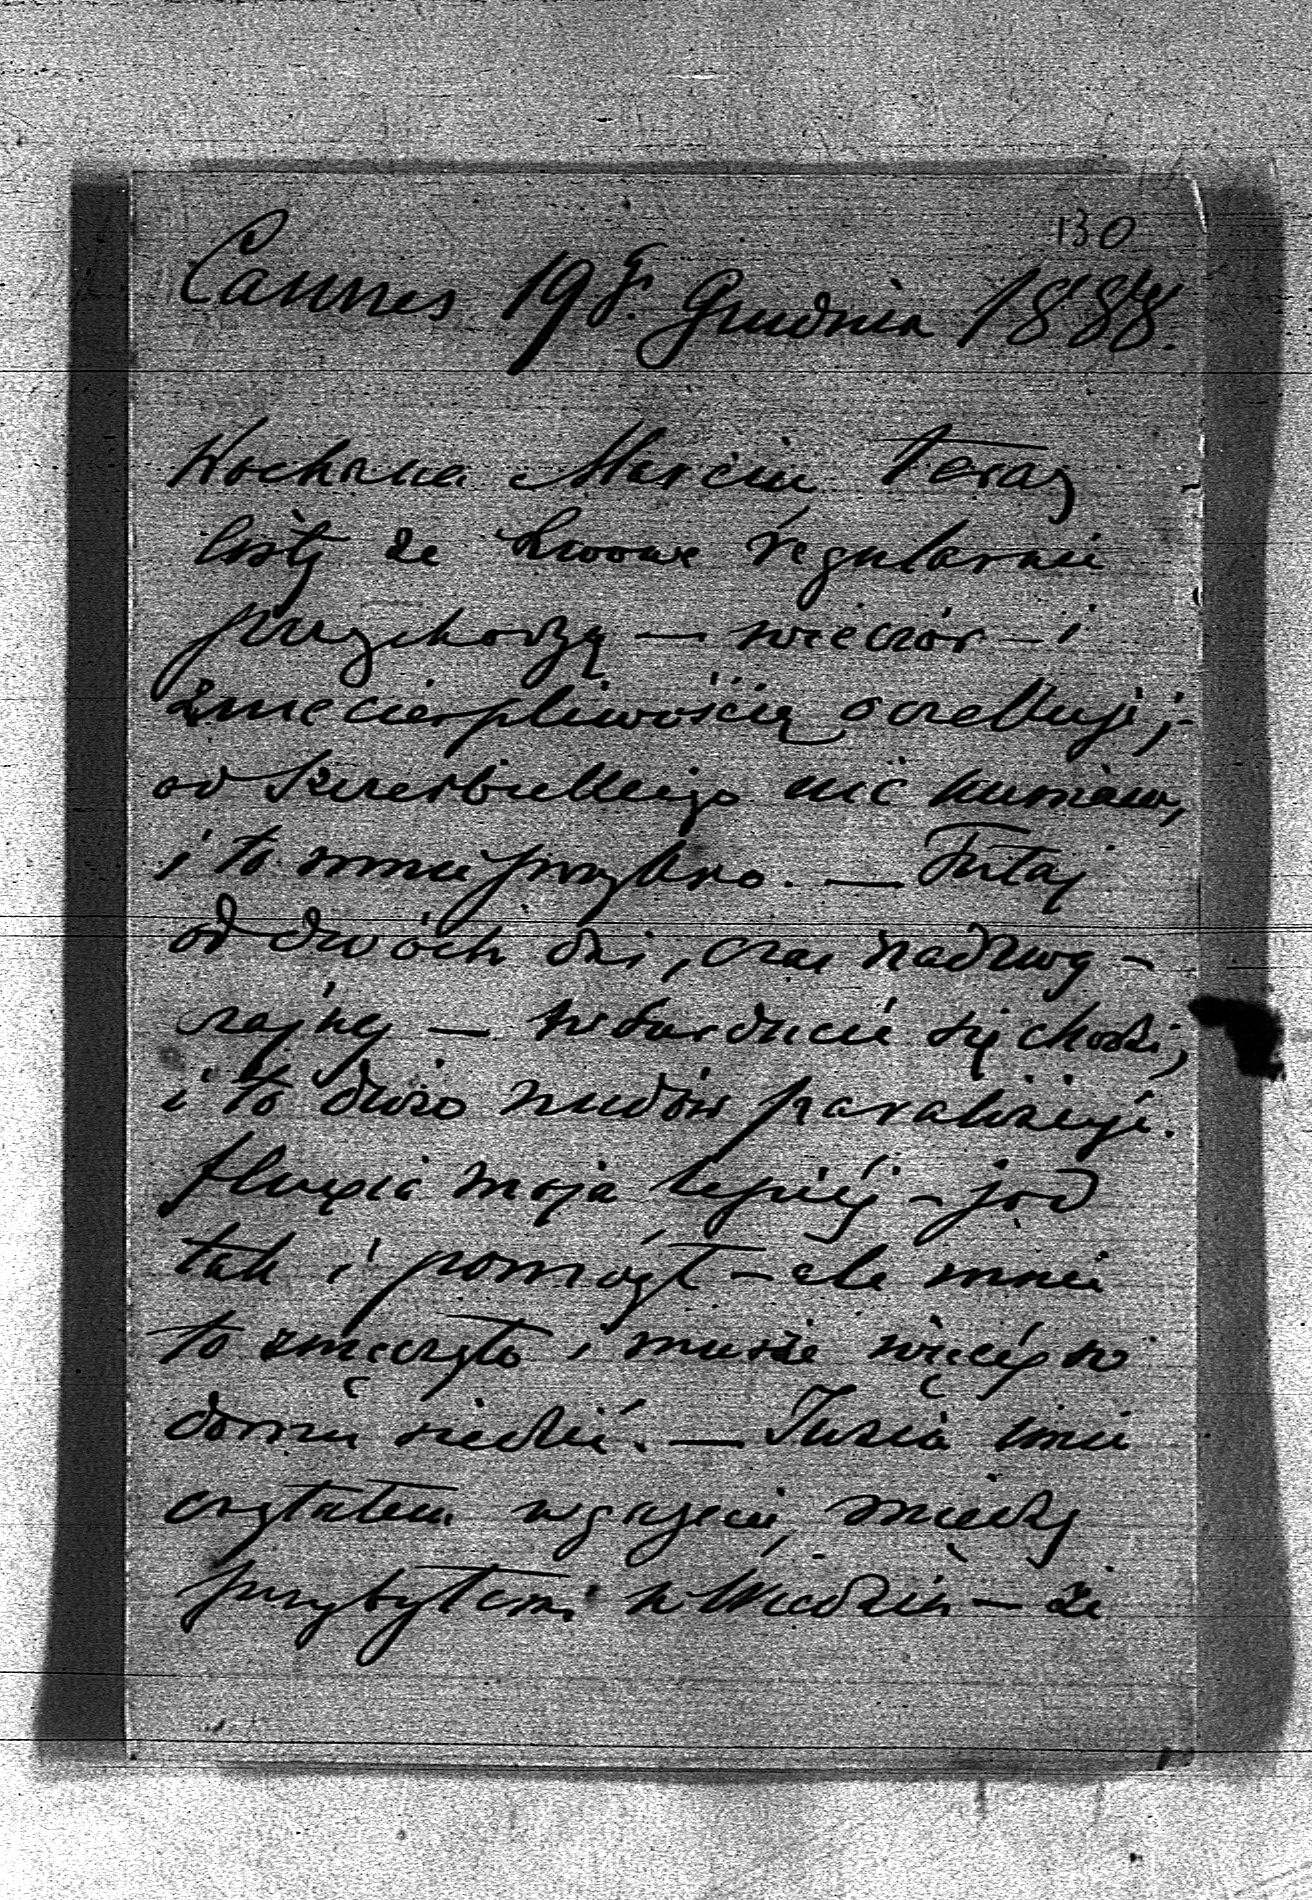 130
Cannes 19 Grudnia 1888.
Kochana Marciu Teraz
listy ze Lwowa regularnie
przychodzą — wieczór — i
z niecierpliwością oczekuję;
od nic nie miałem,
i to mnie przykro. — Tutaj
od dwóch dni, czas nadzwy-
czajny — w surducie się chodzi,
i to dużo nudów paraliżuje.
Chrypka moja lepiej — jod
tak i pomógł — ale mnie
to zmęczyło i muszę więcej w
domu siedzieć. — Juzia imie
czytałem w gazecie, między
przybyłemi w Wiedniu — że